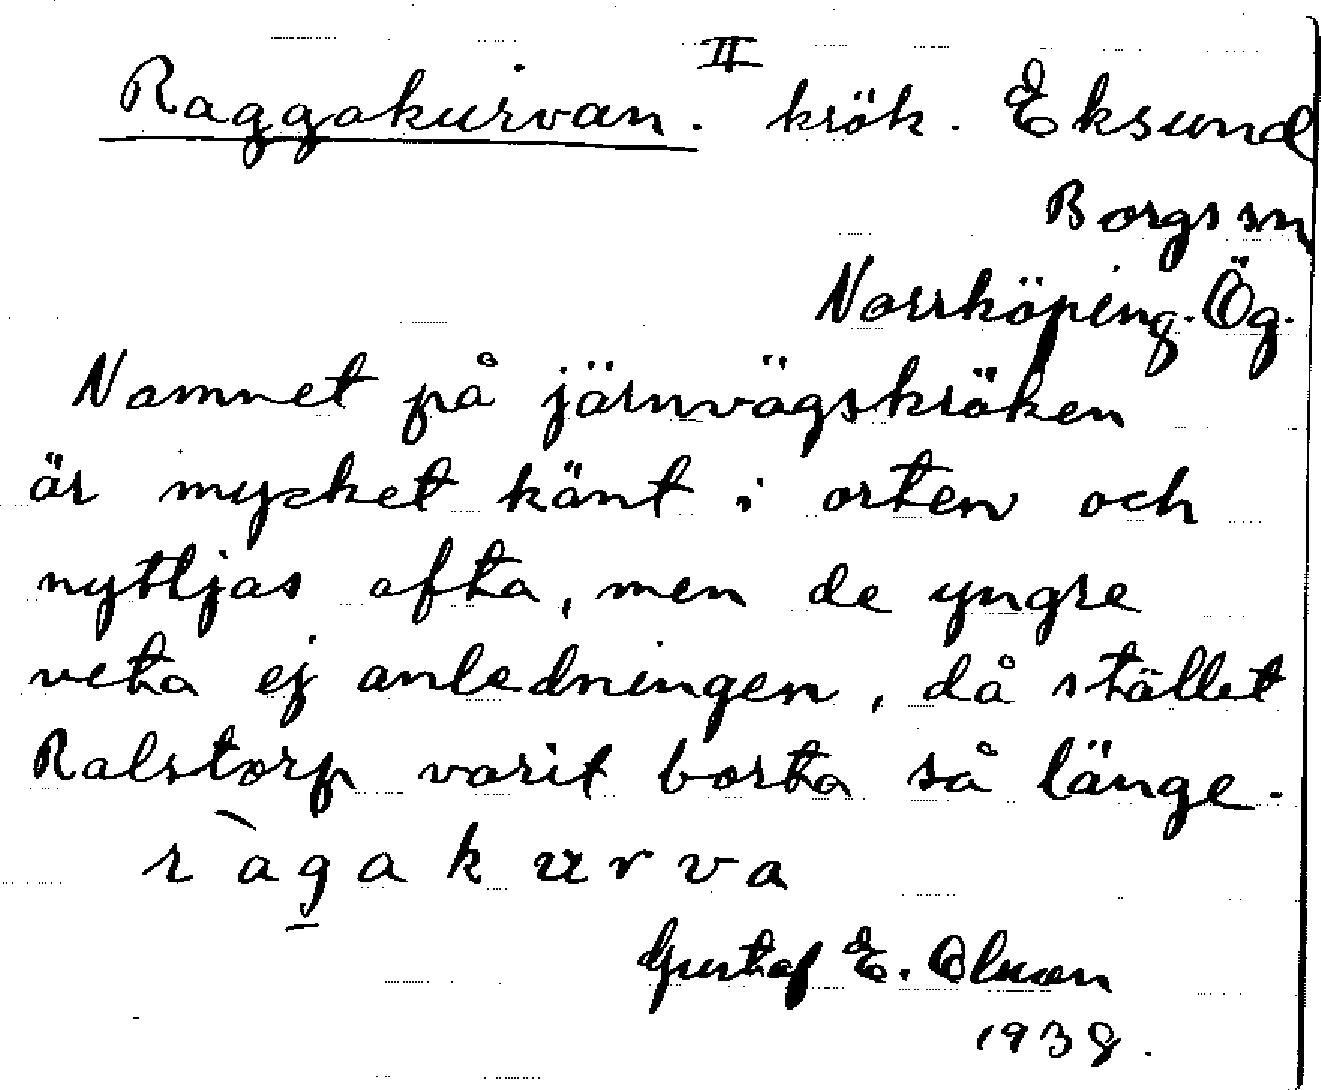 Raggakurvan. II krök. Eksund
Borgs sn
Norrköping. Ög.
Namnet på järnvägskröken
är mycket känt i orten och
nyttjas ofta, men de yngre
veta ej anledningen, då stället
Ralstorp varit borta så länge.
ràgakurva
Gustaf E. Olson
1938.